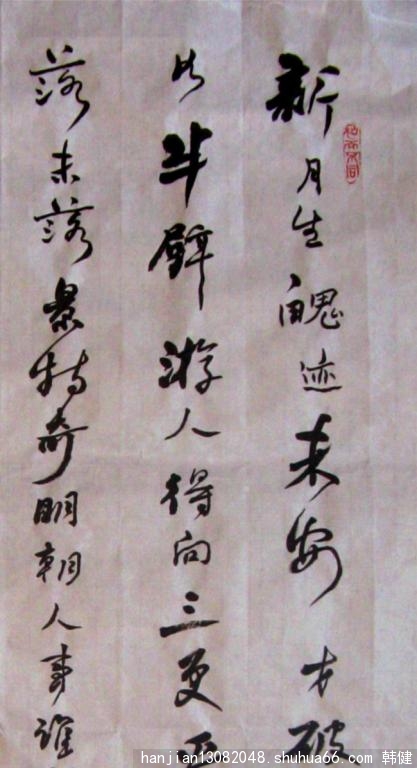 新月生魄迹未安才破
五六半璧游人得向三更看
落未落景特奇明朝人事谁
hanjian13082048. shuhua66. com 韩健